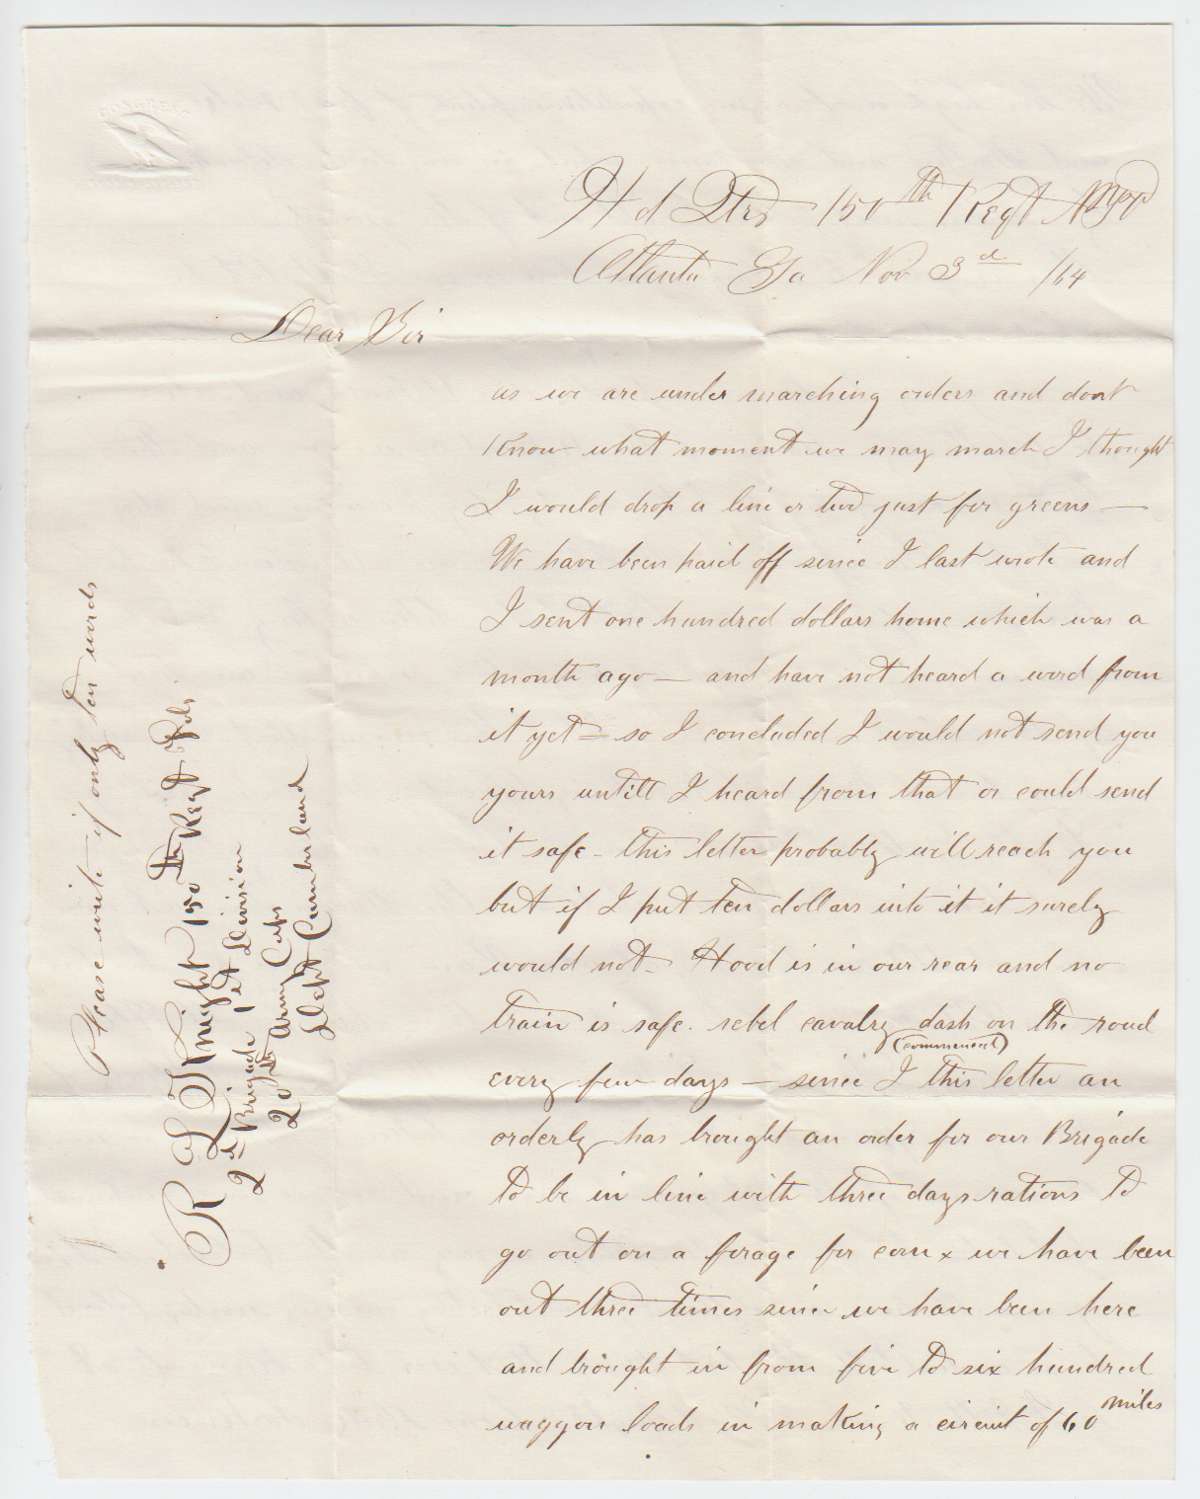 Hd Qtrs 150th Regt N.Y.
Atlanta Ga Nov 3d /64
Dear Sir
as we are under marching orders and dont
Know what moment we may march I thought
I would drop a line or two just for greens —
We have been paid off since I last wrote and
I sent one hundred dollars home which was a
month ago — and have not heard a word from
it yet = so I concluded I would not send you
yours untill I heard from that or could send
it safe - this letter probably will reach you
but if I put ten dollars into it it surely
would not - Hood is in our rear and no
train is safe. rebel cavalry dash on the road
every few days — since I (commenced) this letter an
orderly has brought an order for our Brigade
to be in line with three days rations to
go out on a forage for corn x we have been
out three times since we have been here
and brought in from five to six hundred
waggon loads in making a circuit of 60 miles
Please write if only ten words
R L Knight 150th Regt Vols
2d Brigade 1st Division
20th Army Corps
Dept Cumberland